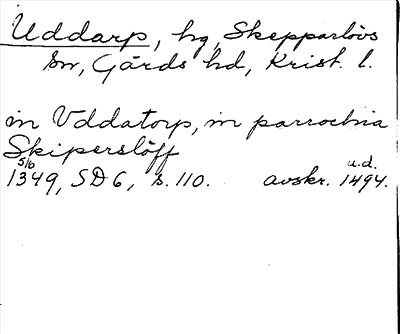 Uddarp, hg, Skepparlövs
sn, Gärds hd, Krist. l.
in Vddatorp, in parrochia
Skiperslöff
5/6 u.d.
1349, SD 6, s. 110. avskr. 1494.